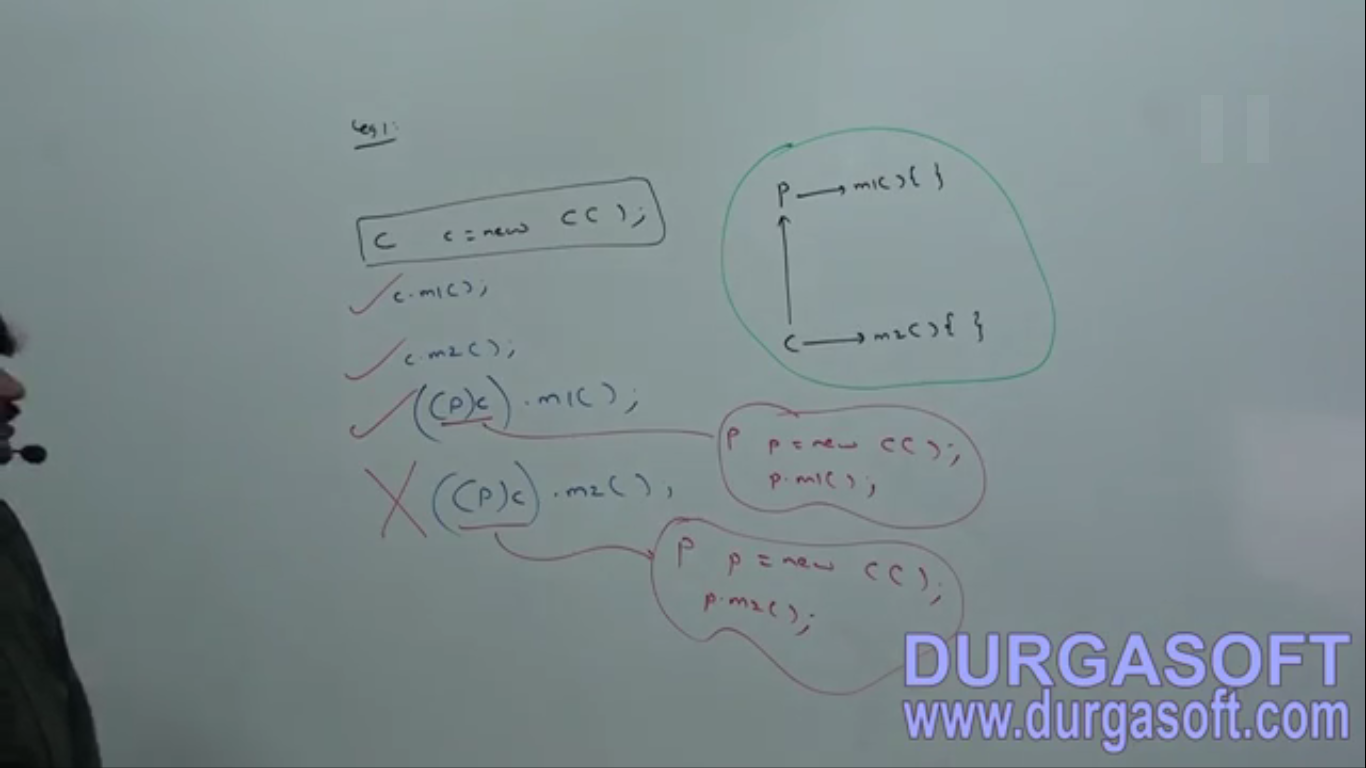 eg1:
C c = new C();
c.m1();
c.m2();
((P)c).m1();
((P)c).m2();
P → m1() { }
C → m2() { }
P p = new C();
p.m1();
P p = new C();
p.m2();
DURGASOFT
www.durgasoft.com